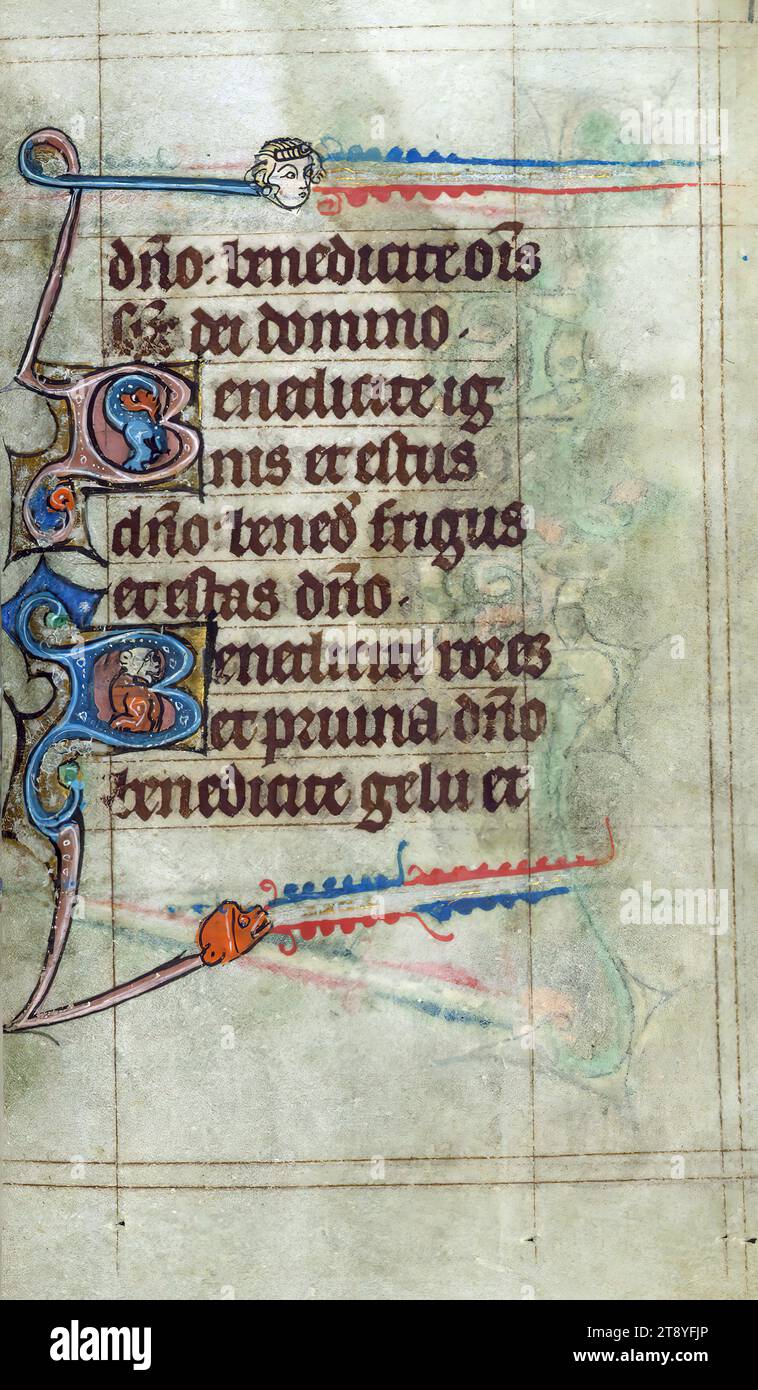 dn̄o: benedicite om̄s
sp̄c dei domino.
Benedicite ig
nis et estus
dn̄o: bened̄ frigus
et estas dn̄o.
Benedicite rores
et pruina dn̄o
benedicite gelu et
alamy
alamy
alamy
a
alamy
Image ID: 2T8YFJP
www.alamy.com